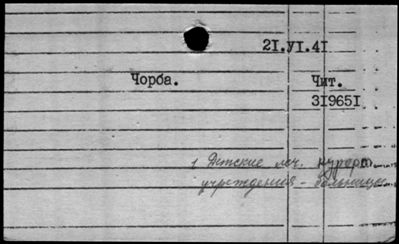 21.VI.41
Чорба.
Чит.
319651
1 Детские леч. курорт.
учреждения - больницы